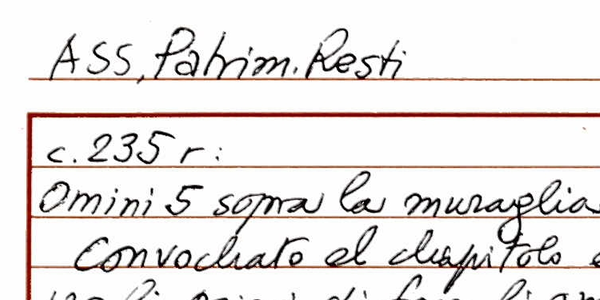 ASS, Patrim. Resti
c. 235 r:
Omini 5 sopra la muraglia
Convochato el chapitolo e